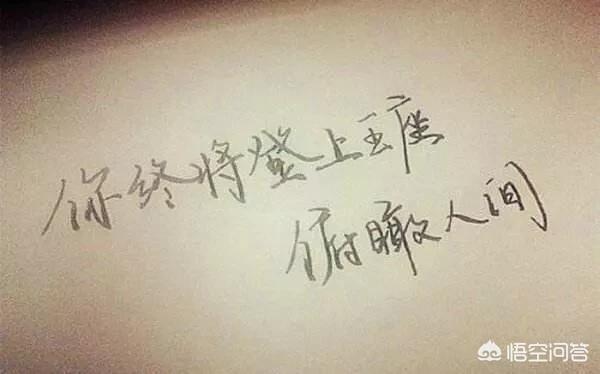 你终将登上王座
俯瞰人间
悟空问答